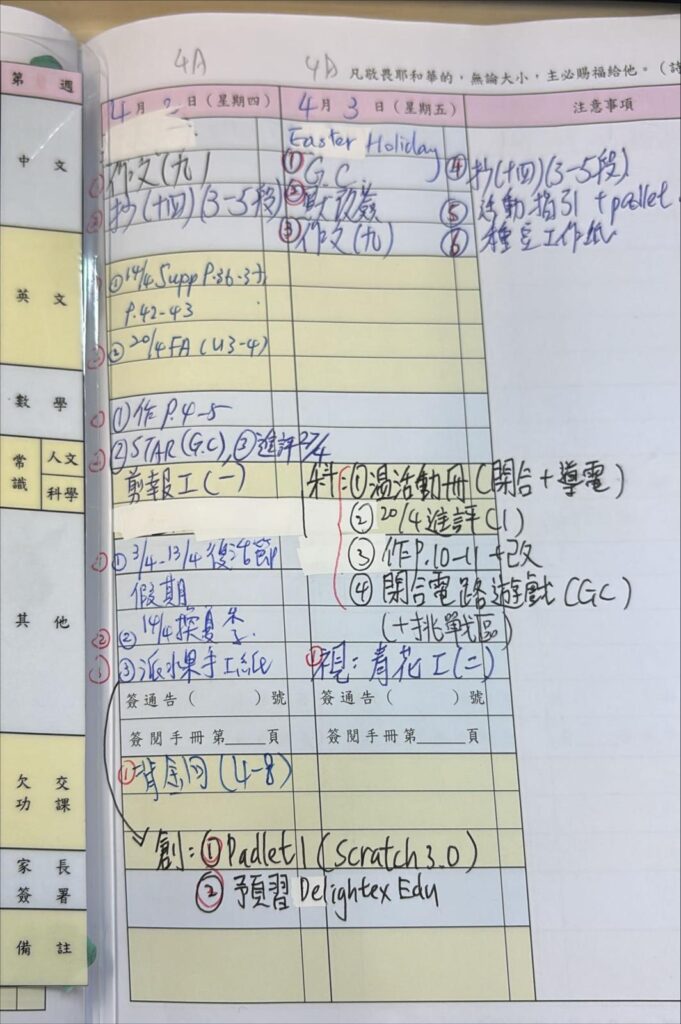 4A
4D 凡敬畏耶和華的，無論大小，主必賜福給他。（詩
第 週
4月 2日（星期四）
4月 3日（星期五）
注意事項
中 文
作文(九)
抄(十四)(3-5段)
Easter Holiday
① G.C
②
③ 作文(九)
④ 抄(十四)(3-5段)
⑤ 活動指引 + padlet
⑥ 種豆工作紙
英 文
① 14/4 Supp P.36-37
P.42-43
② 20/4 FA (U3-4)
數 學
① 作P.4-5
② STAR(G.C), ③ 進評27/4
常識
人文
科學
剪報工(一)
科:① 温活動冊(閉合+導電)
② 20/4 進評(1)
③ 作P.10-11 +改
④ 閉合電路遊戲(GC)
(+挑戰區)
其 他
① 3/4-13/4 復活節
假期
② 14/4 換夏季
③ 派水果手工紙
視：青花工(二)
簽通告（ ）號
簽通告（ ）號
簽閱手冊第____頁
簽閱手冊第____頁
欠 交
功 課
① 背(4-8)
創:① Padlet 1 (Scratch 3.0)
② 預習 Delightex Edu
家 長
簽 署
備 註